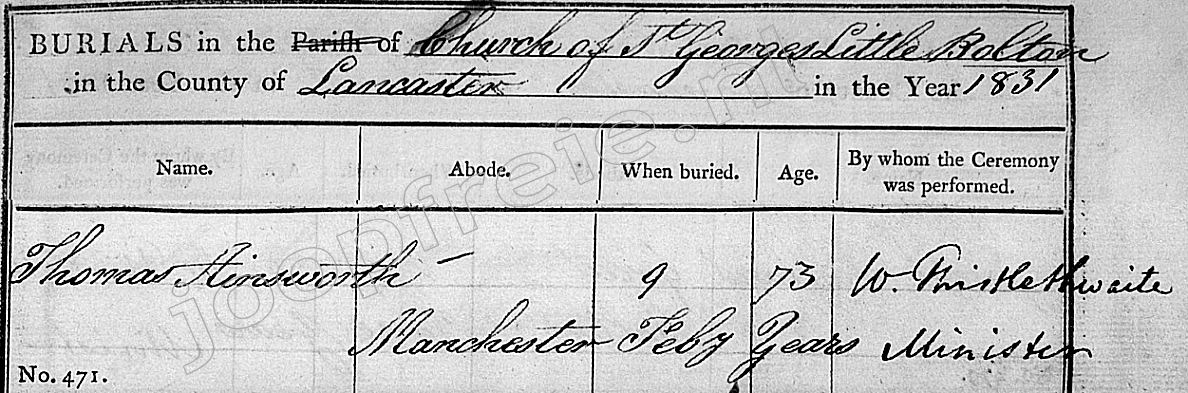 BURIALS in the Parish of Church of St Georges Little Bolton
in the County of Lancaster in the Year 1831
Name. Abode. When buried. Age. By whom the Ceremony was performed.
Thomas Ainsworth 9 73 W. Thistlethwaite
Manchester Feby Years Minister
No. 471.
joopfreie.nl